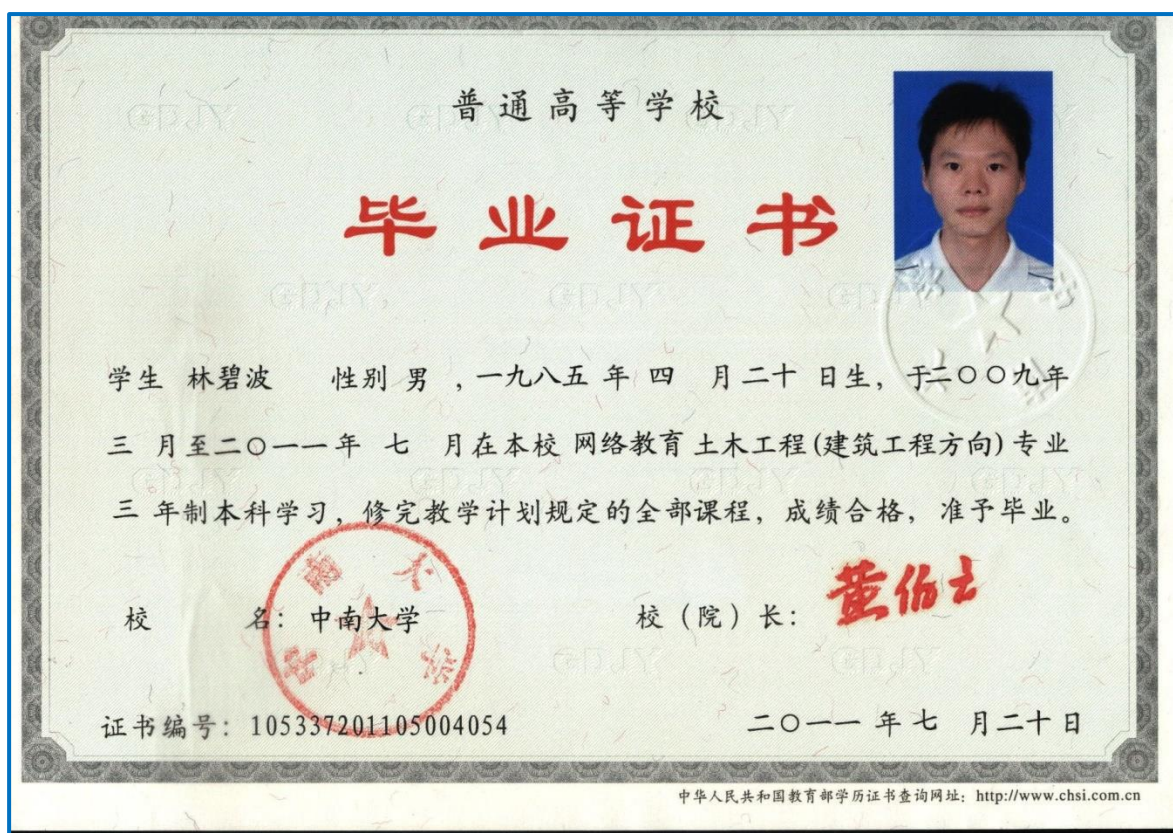 普通高等学校
毕业证书
学生 林碧波 性别 男 ,一九八五 年 四 月二十 日生, 于二〇〇九年
三 月至二〇一一年 七 月在本校 网络教育 土木工程(建筑工程方向) 专业
三 年制本科学习, 修完教学计划规定的全部课程, 成绩合格, 准予毕业。
校 名: 中南大学
中南大学
校(院)长: 黄伯云
证书编号: 105337201105004054
二〇一一 年 七 月二十日
中华人民共和国教育部学历证书查询网址: http://www.chsi.com.cn